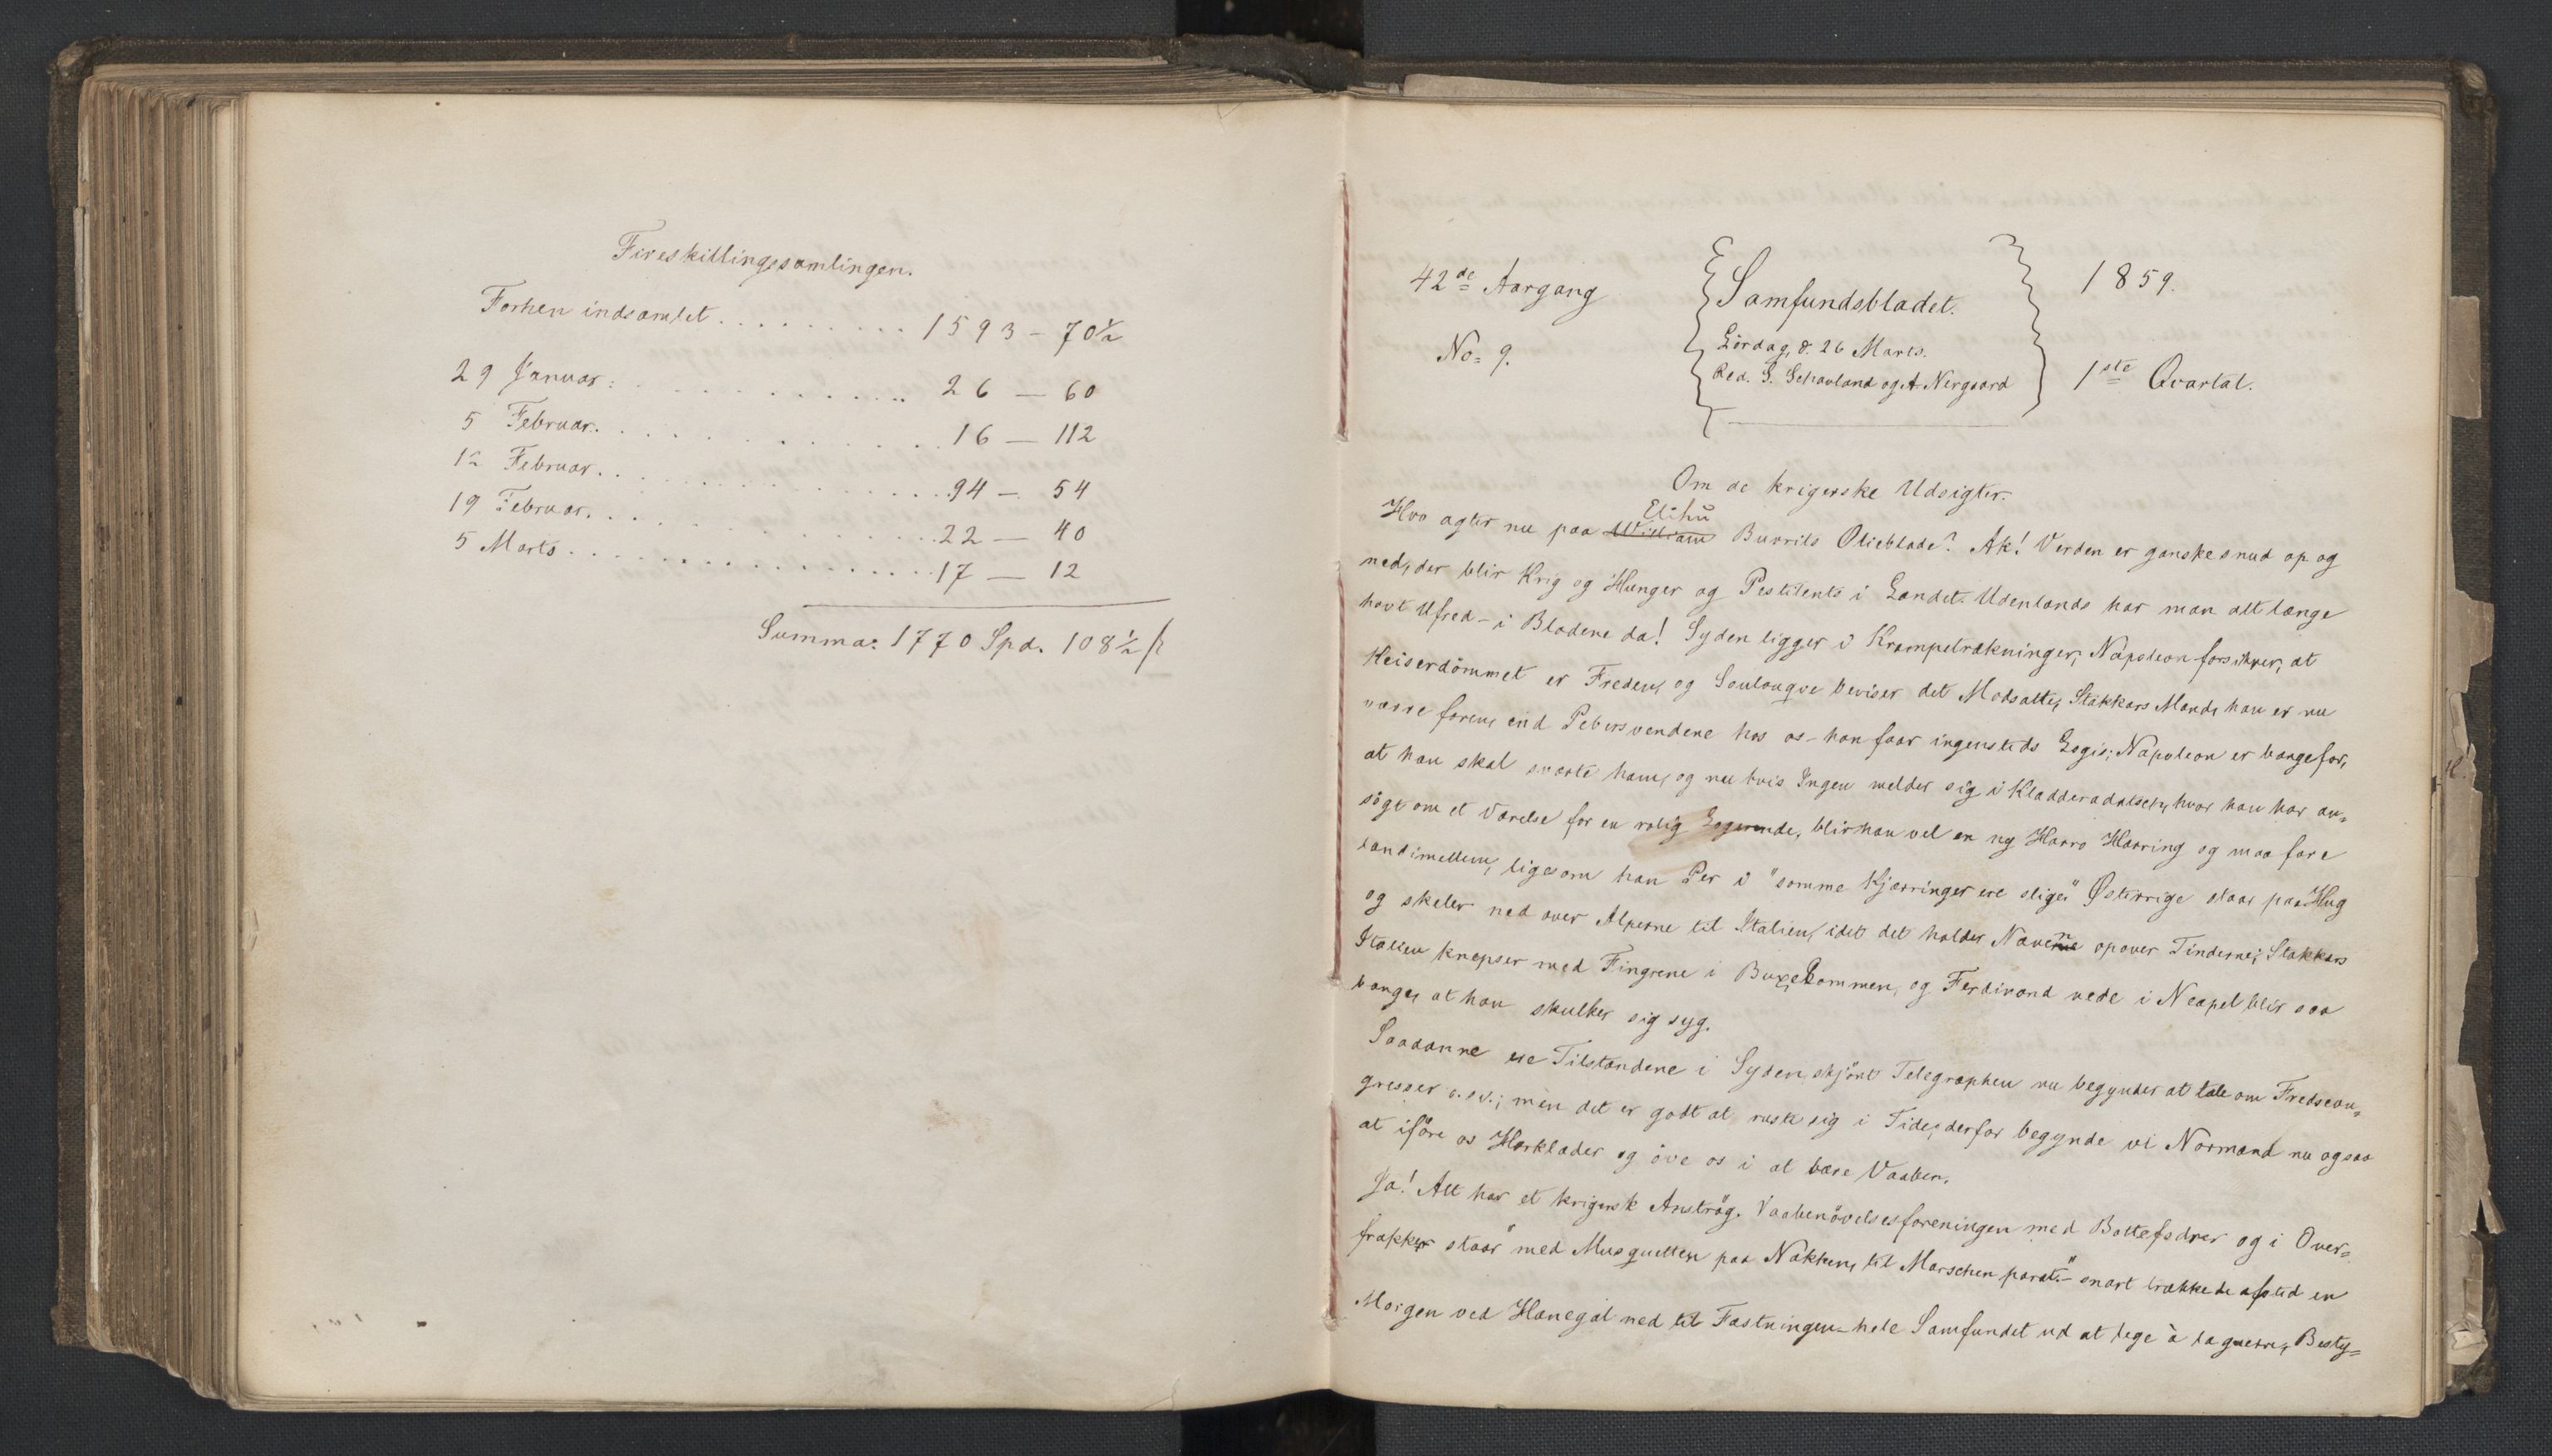 Fireskillingssamlingen.
Forhen indsamlet . . . . . . . . . 1593 – 70½
29 Januar: . . . . . . . . . . . . 26 — 60
5 Februar. . . . . . . . . . . . . 16 — 112
12 Februar. . . . . . . . . . . . . 94 — 54
19 Februar. . . . . . . . . . . . . 22 — 40
5 Marts . . . . . . . . . . . . . . 17 — 12
Summa: 1770 Spd. 108½ ß
42de Aargang
No= 9.
Samfundsbladet.
Lördag, d. 26 Marts.
Red. S. Schavland og A Nergaard
1859.
1ste Qvartal.
Om de krigerske Udsigter.
Elihu
Hvo agter nu paa William Burrits Olieblade? Ak! Verden er ganske snud op og
ned, der blir Krig og Hunger og Pestilents i Landet. Udenlands har man alt længe
havt Ufred – i Bladene da! Syden ligger i Krampetrækninger; Napoleon forsikrer, at
Keiserdömmet er Freden, og Soulouqve beviser det Modsatte, Stakkars Mand, han er nu
værre faren, end Pebersvendene hos os – han faar ingensteds Logis; Napoleon er bange for,
at han skal sværte ham, og nu hvis Ingen melder sig i Kladderadatsch, hvor han har an=
sögt om et Værelse for en rolig Logerende, blir han vel en ny Harro Harring og maa fare
landimellem, ligesom han Per i "somme Kjærringer ere slige." Østerrige staar paa Hug
og skeler ned over Alperne til Italien, idet det holder Næven op over Tinderne; Stakkars
Italien knepser med Fingrene i Buxelommen, og Ferdinand nede i Neapel blir saa
bange, at han skulker sig syg.
Saadanne ere Tilstandene i Syden, skjönt Telegraphen nu begynder at tale om Fredscon=
gresser o.s.v.; men det er godt at ruste sig i Tide, derfor begynde vi Normænd nu ogsaa
at iföre os Hærklæder og öve os i at bære Vaaben.
Ja! Alt har et krigersk Anströg. Vaabenövelsesforeningen med Bottefodrer og i Over=
frakker staar "med Musquetten paa Nakken, til Marschen parat." – snart trækkede afsted en
Morgen ved Hanegal ned til Fæstningen – hele Samfundet ud at lege à la guerre, Besty=